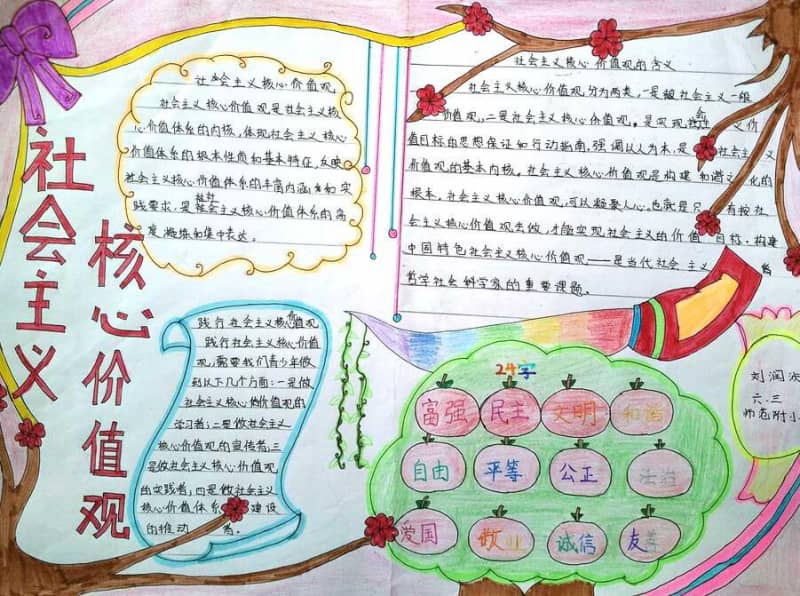 社会主义
核心价值观
社会主义核心价值观,
社会主义核心价值观是社会主义核
心价值体系的内核,体现社会主义核心
价值体系的根本性质和基本特征,反映
社会主义核心价值体系的丰富内涵和实
践要求,是社会主义核心价值体系的高
度凝练和集中表达。
社会主义核心价值观的含义
社会主义核心价值观,分为两类,一是被社会主义一般
价值观,二是社会主义核心价值观。是实现社会主义价
值目标的思想保证和行动指南,强调以人为本,是社会主义
价值观的基本内核。社会主义核心价值观是构建和谐文化的
根本。社会主义核心价值观,可以凝聚人心。也就是只有按社
会主义核心价值观去做,才能实现社会主义的价值目标。构建
中国特色社会主义核心价值观——是当代社会主义
哲学社会科学家的重要课题。
践行社会主义核心价值观
践行社会主义核心价值
观,需要我们青少年做
到以下几个方面:一是做
社会主义核心价值观的
学习者;二是做社会主义
核心价值观的宣传者;三
是做社会主义核心价值观
的实践者,四是做社会主义
核心价值体系建设
的推动者。
24字
富强 民主 文明 和谐
自由 平等 公正 法治
爱国 敬业 诚信 友善
刘润
六.三
师范附小